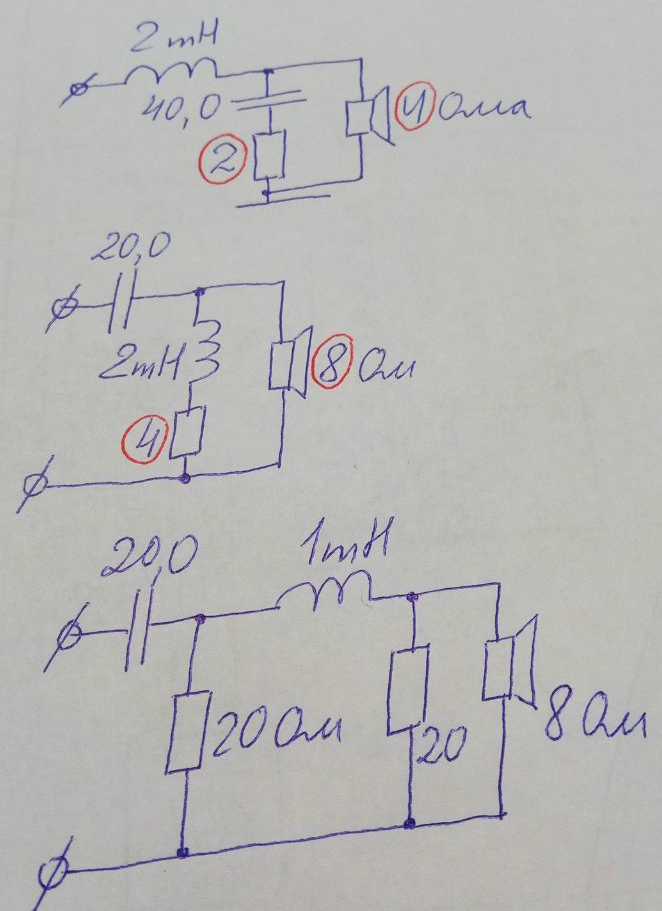 2 mH
40,0
4 Ома
2
20,0
2mH
8 Ом
4
20,0
1mH
20 Ом
20
8 Ом